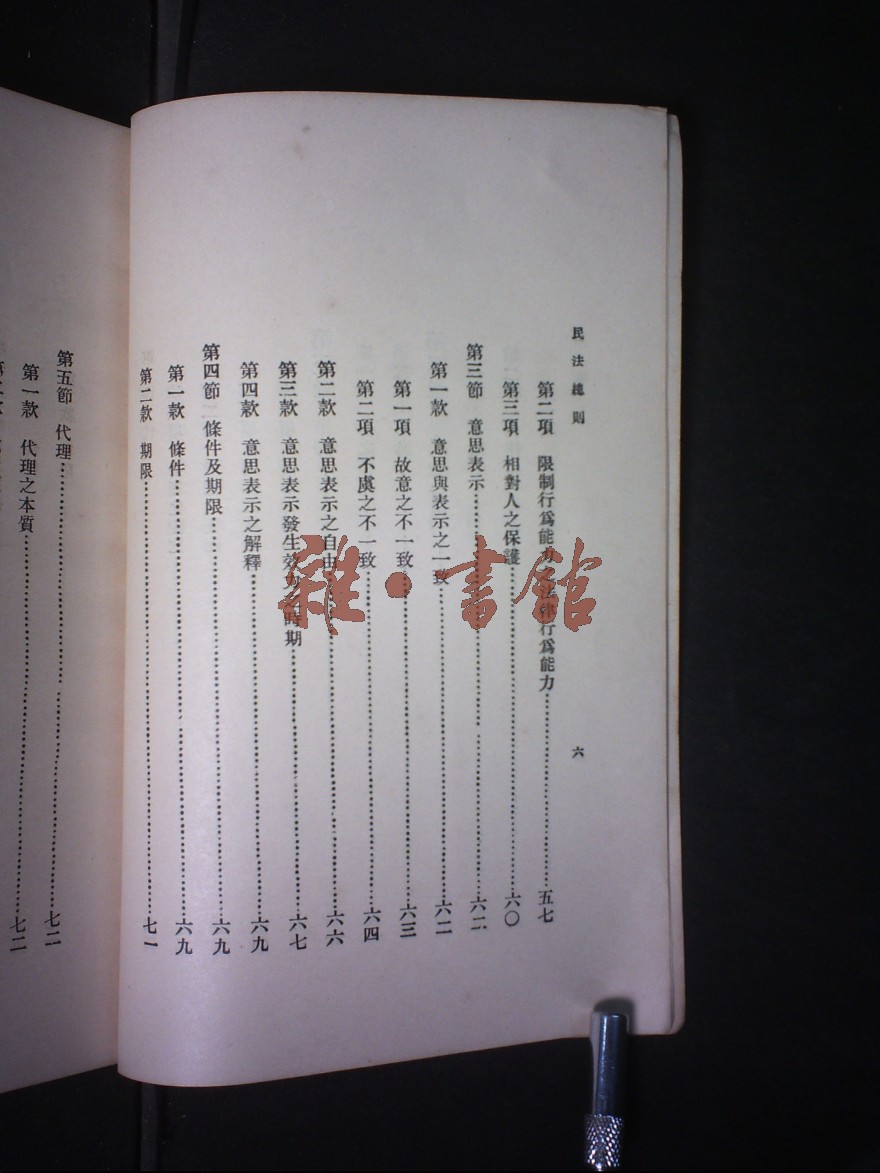 民法總則
六
第二項 限制行爲能力之法律行爲能力……五七
第三項 相對人之保護……六〇
第三節 意思表示……六二
第一款 意思與表示之一致……六二
第一項 故意之不一致……六三
第二項 不虞之不一致……六四
第二款 意思表示之自由……六六
第三款 意思表示發生效力之時期……六七
第四款 意思表示之解釋……六九
第四節 條件及期限……六九
第一款 條件……六九
第二款 期限……七一
第五節 代理……七二
第一款 代理之本質……七二
雜·書館